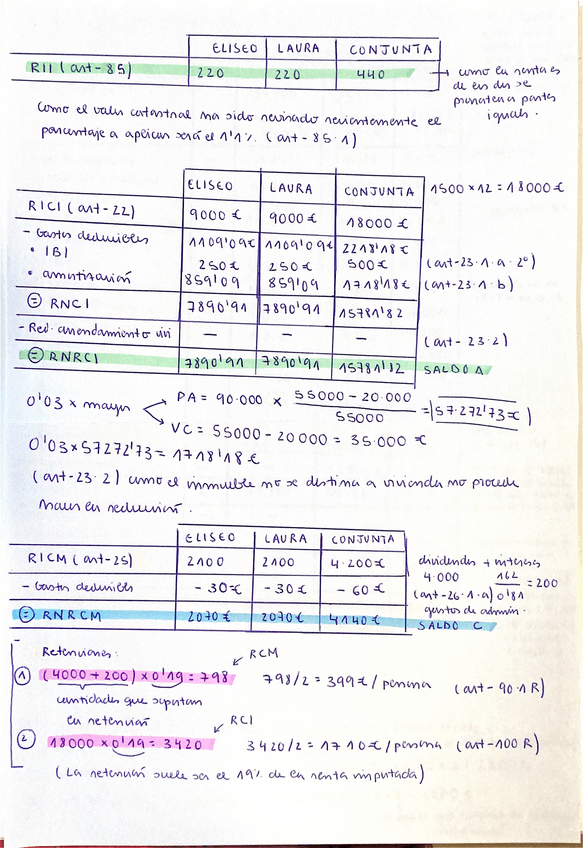 ELISEO LAURA CONJUNTA
RII (art-85) 220 220 440 → como la renta es
de los dos se
prorratea a partes
iguales.
Como el valor catastral ha sido revisado recientemente el
porcentaje a aplicar será el 1'1%. (art-85.1)
ELISEO LAURA CONJUNTA 1500 x 12 = 18000 €
RICI (art-22) 9000 € 9000 € 18000 €
- Gastos deducibles 1109'09€ 1109'09€ 2218'18€
• IBI 250€ 250€ 500€ (art-23.1.a.2º)
• amortización 859'09 859'09 1718'18€ (art-23.1.b)
= RNCI 7890'91 7890'91 15781'82
- Red. arrendamiento vivi — — — (art-23.2)
= RNRCI 7890'91 7890'91 15781'12 SALDO A
0'03 x mayor PA = 90.000 x 55000 - 20.000 / 55000 = 57.272'73€
VC = 55000 - 20000 = 35.000 €
0'03 x 57272'73 = 1718'18 €
(art-23.2) como el inmueble no se destina a vivienda no procede
hacer la reducción.
ELISEO LAURA CONJUNTA
RICM (art-25) 2100 2100 4.200€ dividendos + intereses
4.000 162 / 0'81 = 200
- Gastos deducibles - 30€ - 30€ - 60€ (art-26.1.a)
gastos de admin.
= RNRCM 2070€ 2070€ 4140€ SALDO C
Retenciones: RCM
1 (4000 + 200) x 0'19 = 798 798/2 = 399€/persona (art-90.1 R)
cantidades que soportan
la retención RCI
2 18000 x 0'19 = 3420 3420/2 = 1710€/persona (art-100 R)
(La retención suele ser el 19% de la renta imputada)